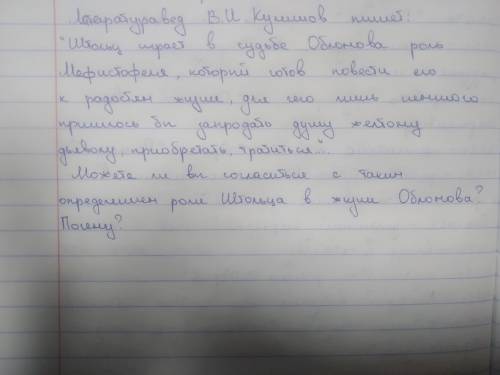 Литературавед В.И. Кулешов пишет:
"Штольц играет в судьбе Обломова роль
Мефистофеля, который готов повести его
к радостям жизни, для чего лишь немного
пришлось бы запродать душу желтому
дьяволу, приобретать, тратиться"...
Можете ли вы согласиться с таким
определением роли Штольца в жизни Обломова?
Почему?